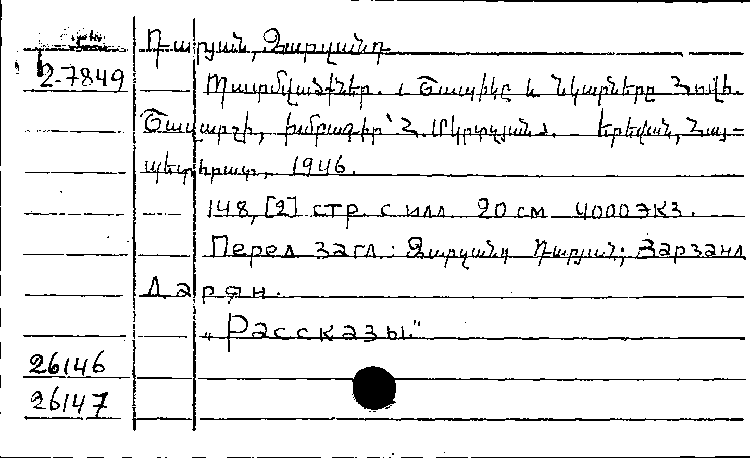 Դարյան, Զարզանդ
2-7849 Պատմվածքներ. Շապիկը և նկարները Հովհ.
Շավարշի, խմբագիր՝ Հ. Մկրտչյան. - Երևան, Հայ-
պետհրատ, 1946.
148, [2] стр. с илл. 20 см 4000 экз.
Перед загл.: Զարզանդ Դարյան; Зарзанд
Дарян.
„Рассказы."
26146
26147